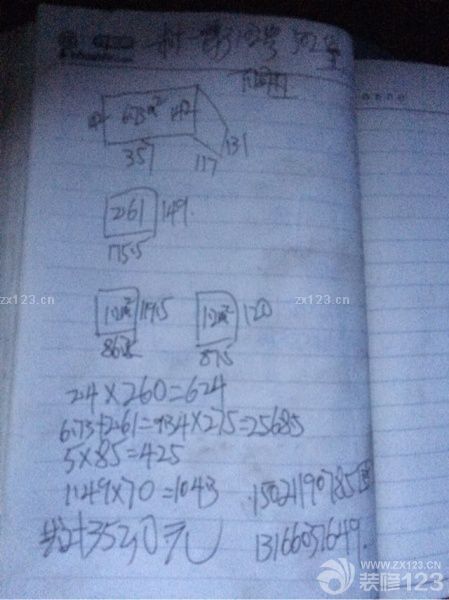 6.73m²
142
357
117
131
2.61
149
175.5
1.02m²
119.5
86.5
1.02m²
120
87.5
2.4×260=624
6.73+2.61=9.34×275=2568.5
5×85=425
14.9×70=1043
共计3520元
15021190785
13166051649.
zx123.cn
zx123.cn
zx123.cn
WWW.ZX123.CN
装修123